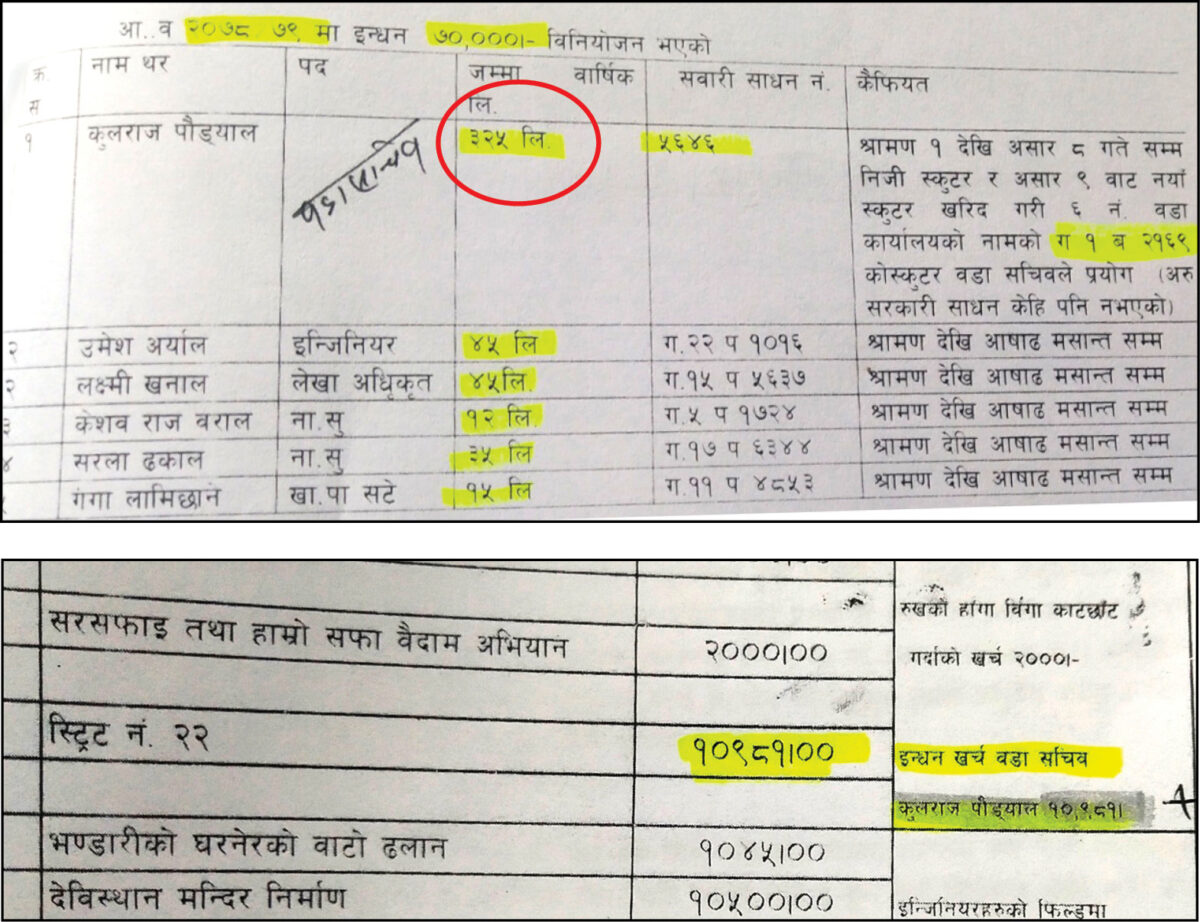 आ..व २०७८ ७९ मा इन्धन ७०,०००।- विनियोजन भएको
क्र. स नाम थर पद जम्मा वार्षिक लि. सवारी साधन नं. कैफियत
१ कुलराज पौड्याल वडा सचिव ३२५ लि. ५६४६ श्रामण १ देखि असार ८ गते सम्म
निजी स्कुटर र असार ९ वाट नयाँ
स्कुटर खरिद गरी ६ नं. वडा
कार्यालयको नामको ग १ ब २१६९
कोस्कुटर वडा सचिवले प्रयोग (अरु
सरकारी साधन केहि पनि नभएको)
२ उमेश अर्याल इन्जिनियर ४५ लि ग.२२ प १०१६ श्रामण देखि आषाढ मसान्त सम्म
२ लक्ष्मी खनाल लेखा अधिकृत ४५लि. ग.१५ प ५६३७ श्रामण देखि आषाढ मसान्त सम्म
३ केशव राज वराल ना.सु १२ लि. ग.५ प १७२४ श्रामण देखि आषाढ मसान्त सम्म
४ सरला ढकाल ना.सु ३५ लि ग.१७ प ६३४४ श्रामण देखि आषाढ मसान्त सम्म
गंगा लामिछाने खा.पा सटे १५ लि ग.११ प ४८५३ श्रामण देखि आषाढ मसान्त सम्म
रुखको हांगा विंगा काटछाँट
सरसफाइ तथा हाम्रो सफा वैदाम अभियान २०००।०० गर्दाको खर्च २०००।-
स्ट्रिट नं. २२ १०९८१।०० इन्धन खर्च वडा सचिव
कुलराज पौड्याल १०,९८१।
भण्डारीको घरनेरको वाटो ढलान १०४५।००
देविस्थान मन्दिर निर्माण १०५००।०० इन्जिनियरहरुको फिल्डमा